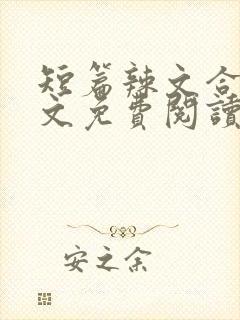 短篇辣文合
文免費閱讀
安之余